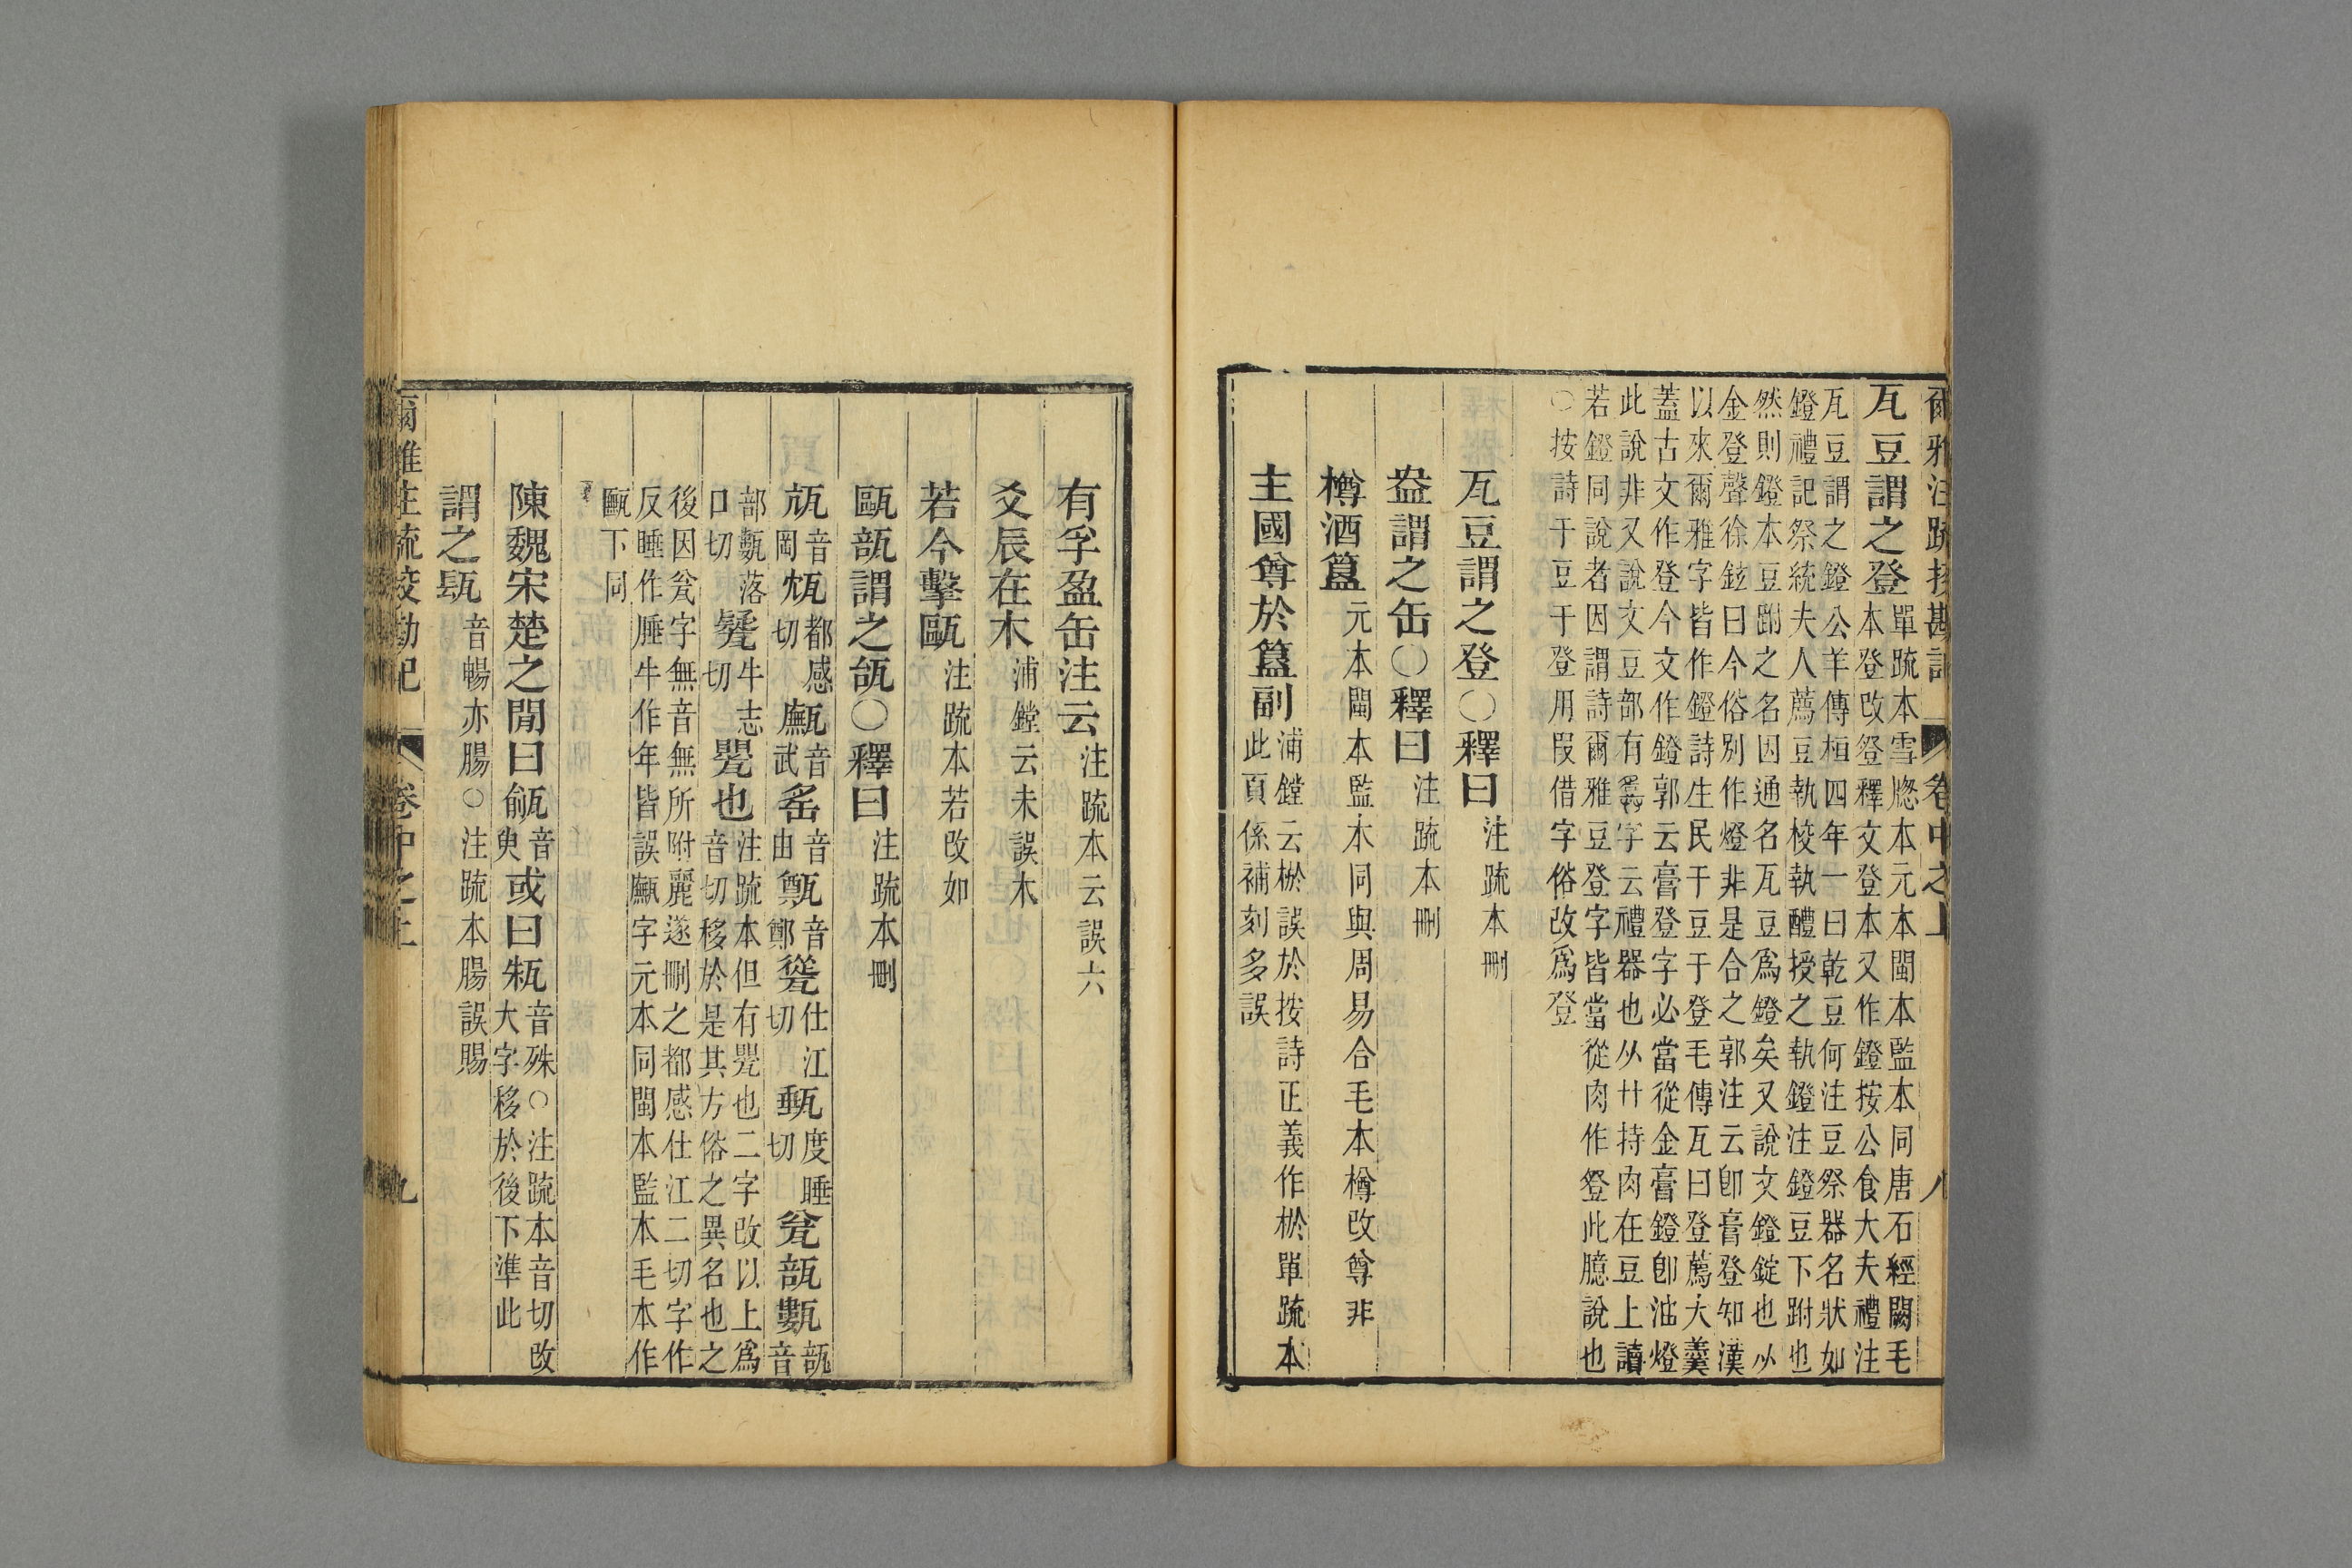 爾雅注疏挍勘記 卷中之上 八
瓦豆謂之登 單疏本雪牕本元本閩本監本同唐石經闕毛
本登改豋釋文登本又作鐙按公食大夫禮注
瓦豆謂之鐙公羊傳桓四年一曰乾豆何注豆祭器名狀如
鐙禮記祭統夫人薦豆執校執醴授之執鐙注鐙豆下跗也
然則鐙本豆跗之名因通名瓦豆爲鐙矣又說文鐙錠也从
金登聲徐鉉曰今俗別作燈非是合之郭注云卽膏登知漢
以來爾雅字皆作鐙詩生民于豆于登毛傳瓦曰登薦大羹
蓋古文作登今文作鐙郭云膏登字必當從金膏鐙卽油燈
此說非又說文豆部有𤼷字云禮器也从廾持肉在豆上讀
若鐙同說者因謂詩爾雅豆登字皆當從肉作豋此臆說也
○按詩于豆于登用叚借字俗改爲登
瓦豆謂之登○釋曰 注疏本刪
盎謂之缶○釋曰 注疏本刪
樽酒簋 元本閩本監本同與周易合毛本樽改尊非
主國尊於簋副 浦鏜云於誤於按詩正義作於單疏本
此頁係補刻多誤
有孚盈缶注云 注疏本云誤六
爻辰在木 浦鏜云未誤木
若今擊甌 注疏本若改如
甌瓿謂之瓵○釋曰 注疏本刪
瓨 音岡 㼜 都感切 甒 音武 䍃 音由 㽀 音鄭 㽮 仕江切 甀 度睡切 瓮瓿甊 瓿音
部甊落口切 甖 牛志切 甖也 注疏本但有甖也二字改以上爲音切移於是其方俗之異名也之
後因瓮字無音無所附麗遂刪之都感仕江二切字作
反睡作腄牛作年皆誤甒字元本同閩本監本毛本作
甌下同
陳魏宋楚之閒曰㼶 音臾 或曰㼡 音殊○注疏本音切改大字移於後下準此
謂之瓺 音暢亦腸○注疏本腸誤賜
爾雅注疏挍勘記 卷中之上 九